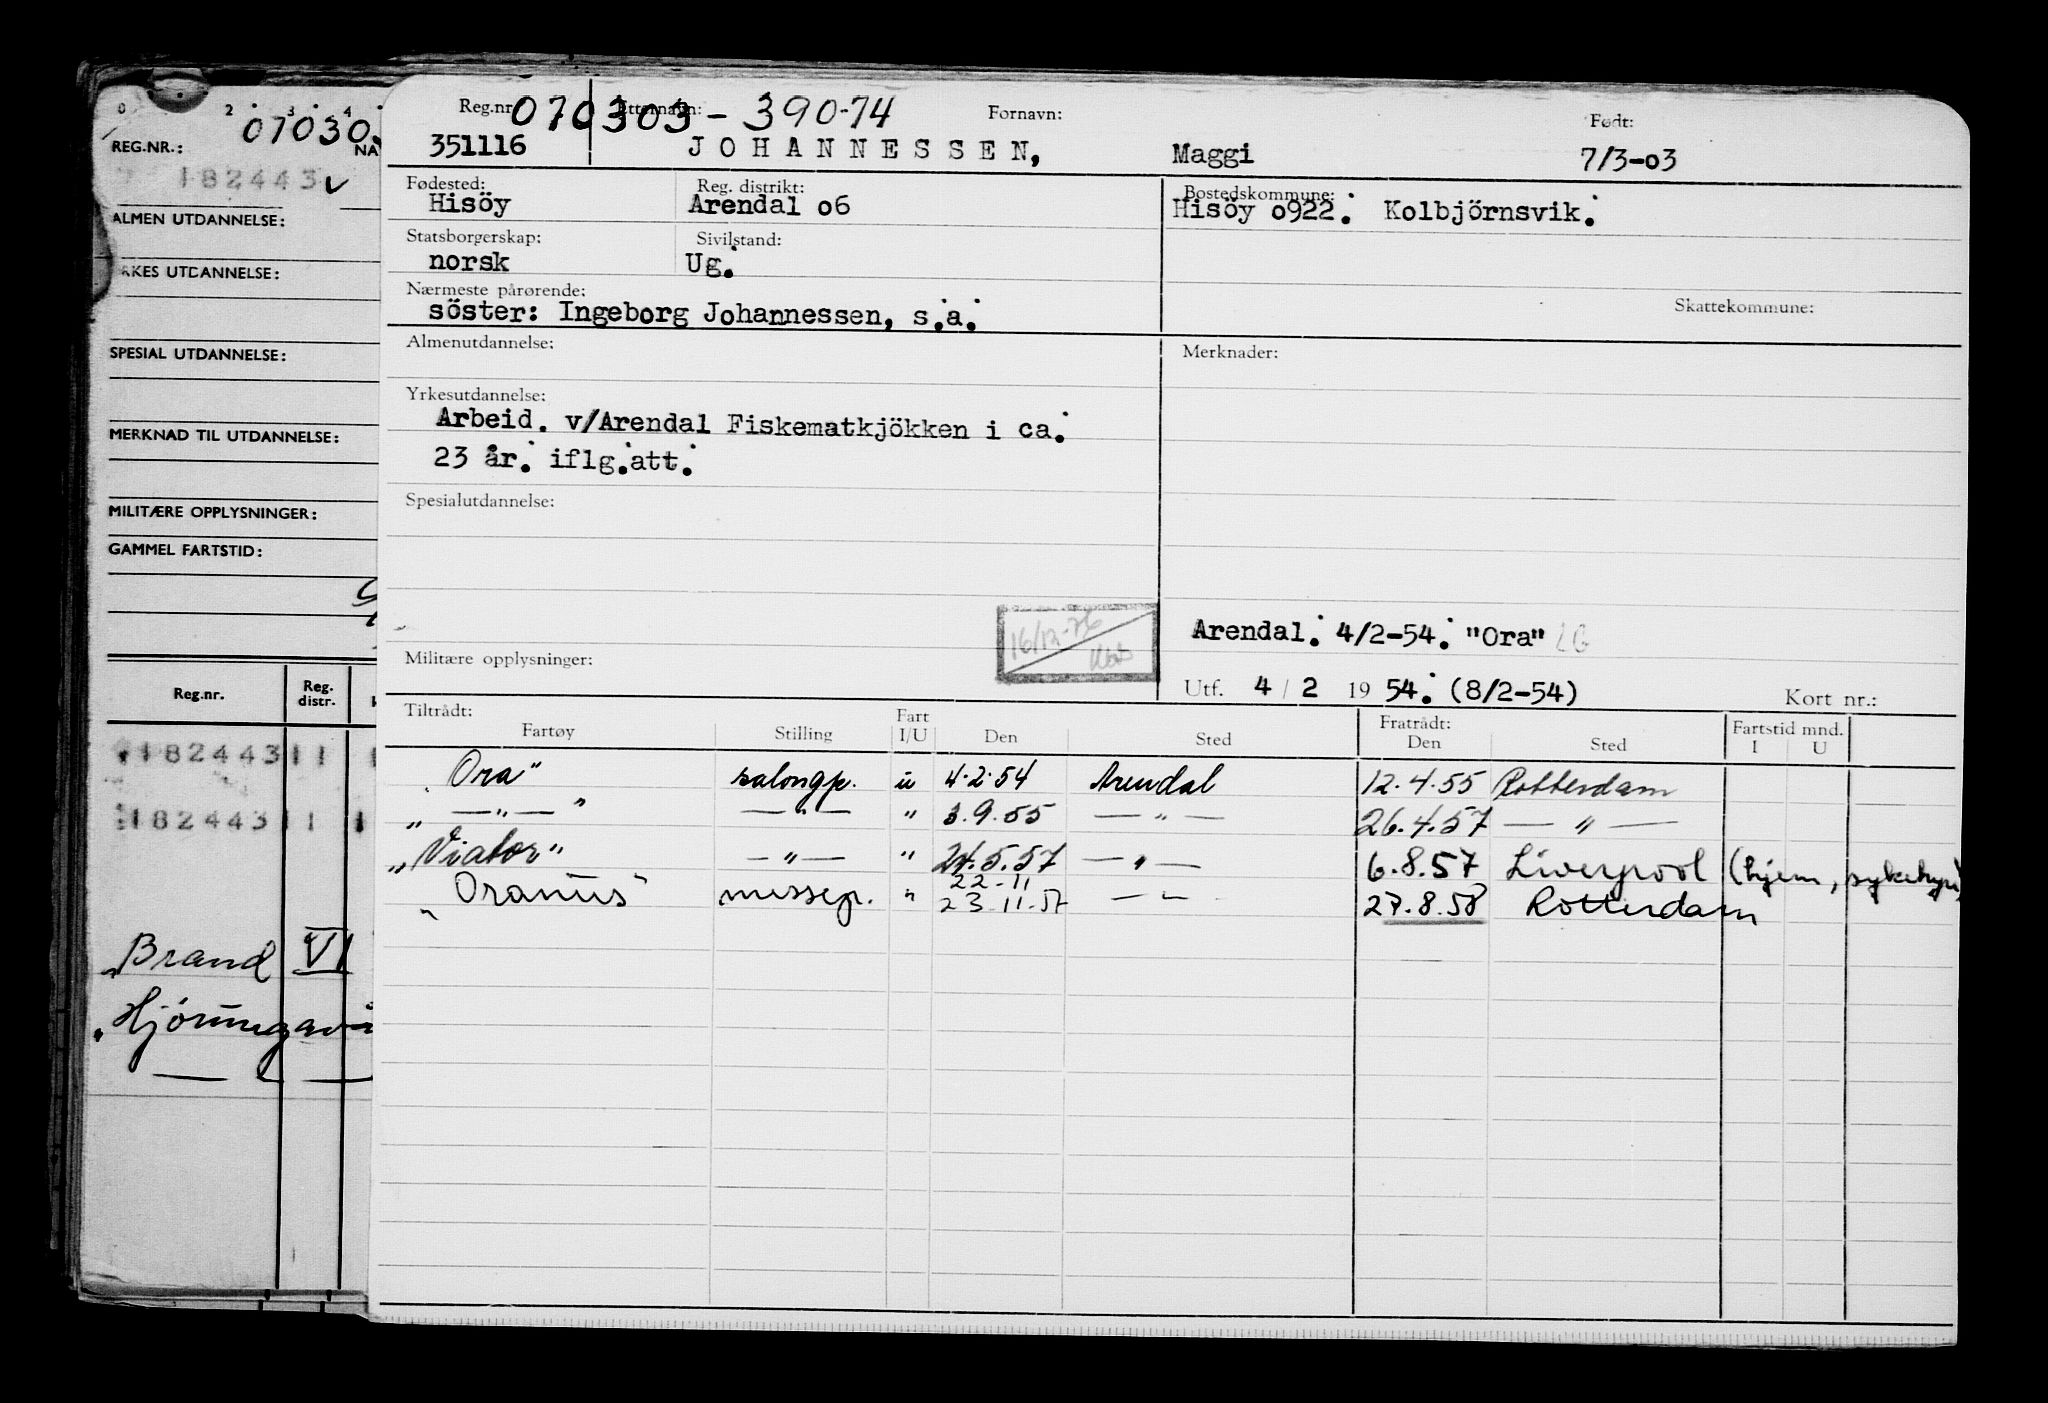 0 2 3 4
07030
REG.NR.: NA
182443 v
ALMEN UTDANNELSE:
RKES UTDANNELSE:
SPESIAL UTDANNELSE:
MERKNAD TIL UTDANNELSE:
MILITÆRE OPPLYSNINGER:
GAMMEL FARTSTID:
Reg.nr. Reg. distr.
182443 11 1
182443 11 1
„Brand VI
„Hjörunga
Reg.nr. 070303-390-74 Etternavn: Fornavn: Født:
351116 JOHANNESSEN, Maggi 7/3-03
Fødested: Reg. distrikt: Bostedskommune:
Hisöy Arendal 06 Hisöy 0922. Kolbjörnsvik.
Statsborgerskap: Sivilstand:
norsk Ug.
Nærmeste pårørende: Skattekommune:
söster: Ingeborg Johannessen, s.a.
Almenutdannelse: Merknader:
Yrkesutdannelse:
Arbeid. v/Arendal Fiskematkjökken i ca.
23 år. iflg.att.
Spesialutdannelse:
16/12-76
Arendal. 4/2-54. "Ora"
Militære opplysninger:
Utf. 4 / 2 19 54. (8/2-54) Kort nr.:
Tiltrådt: Fartøy Stilling Fart I/U Den Sted Fratrådt: Den Sted Fartstid mnd. I U
„Ora" salongp. u 4.2.54 Arendal 12.4.55 Rotterdam
„ — " — " — " — " 3.9.55 — " — 26.4.57 — " —
„Viator" — " — " 24.5.57 — " — 6.8.57 Liverpool (hjem,
22-11
„Oranius" messep. " 23-11-57 — " — 27.8.58 Rotterdam